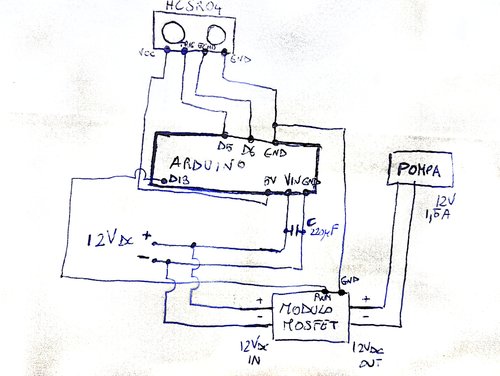 HCSR04
VCC TRIG ECHO GND
D5 D6 GND
ARDUINO
D13
5V VIN GND
POMPA
12V
1,5A
C
220µF
12VDC +
-
PWM GND
+ +
MODULO
- -
MOSFET
12VDC 12VDC
IN OUT